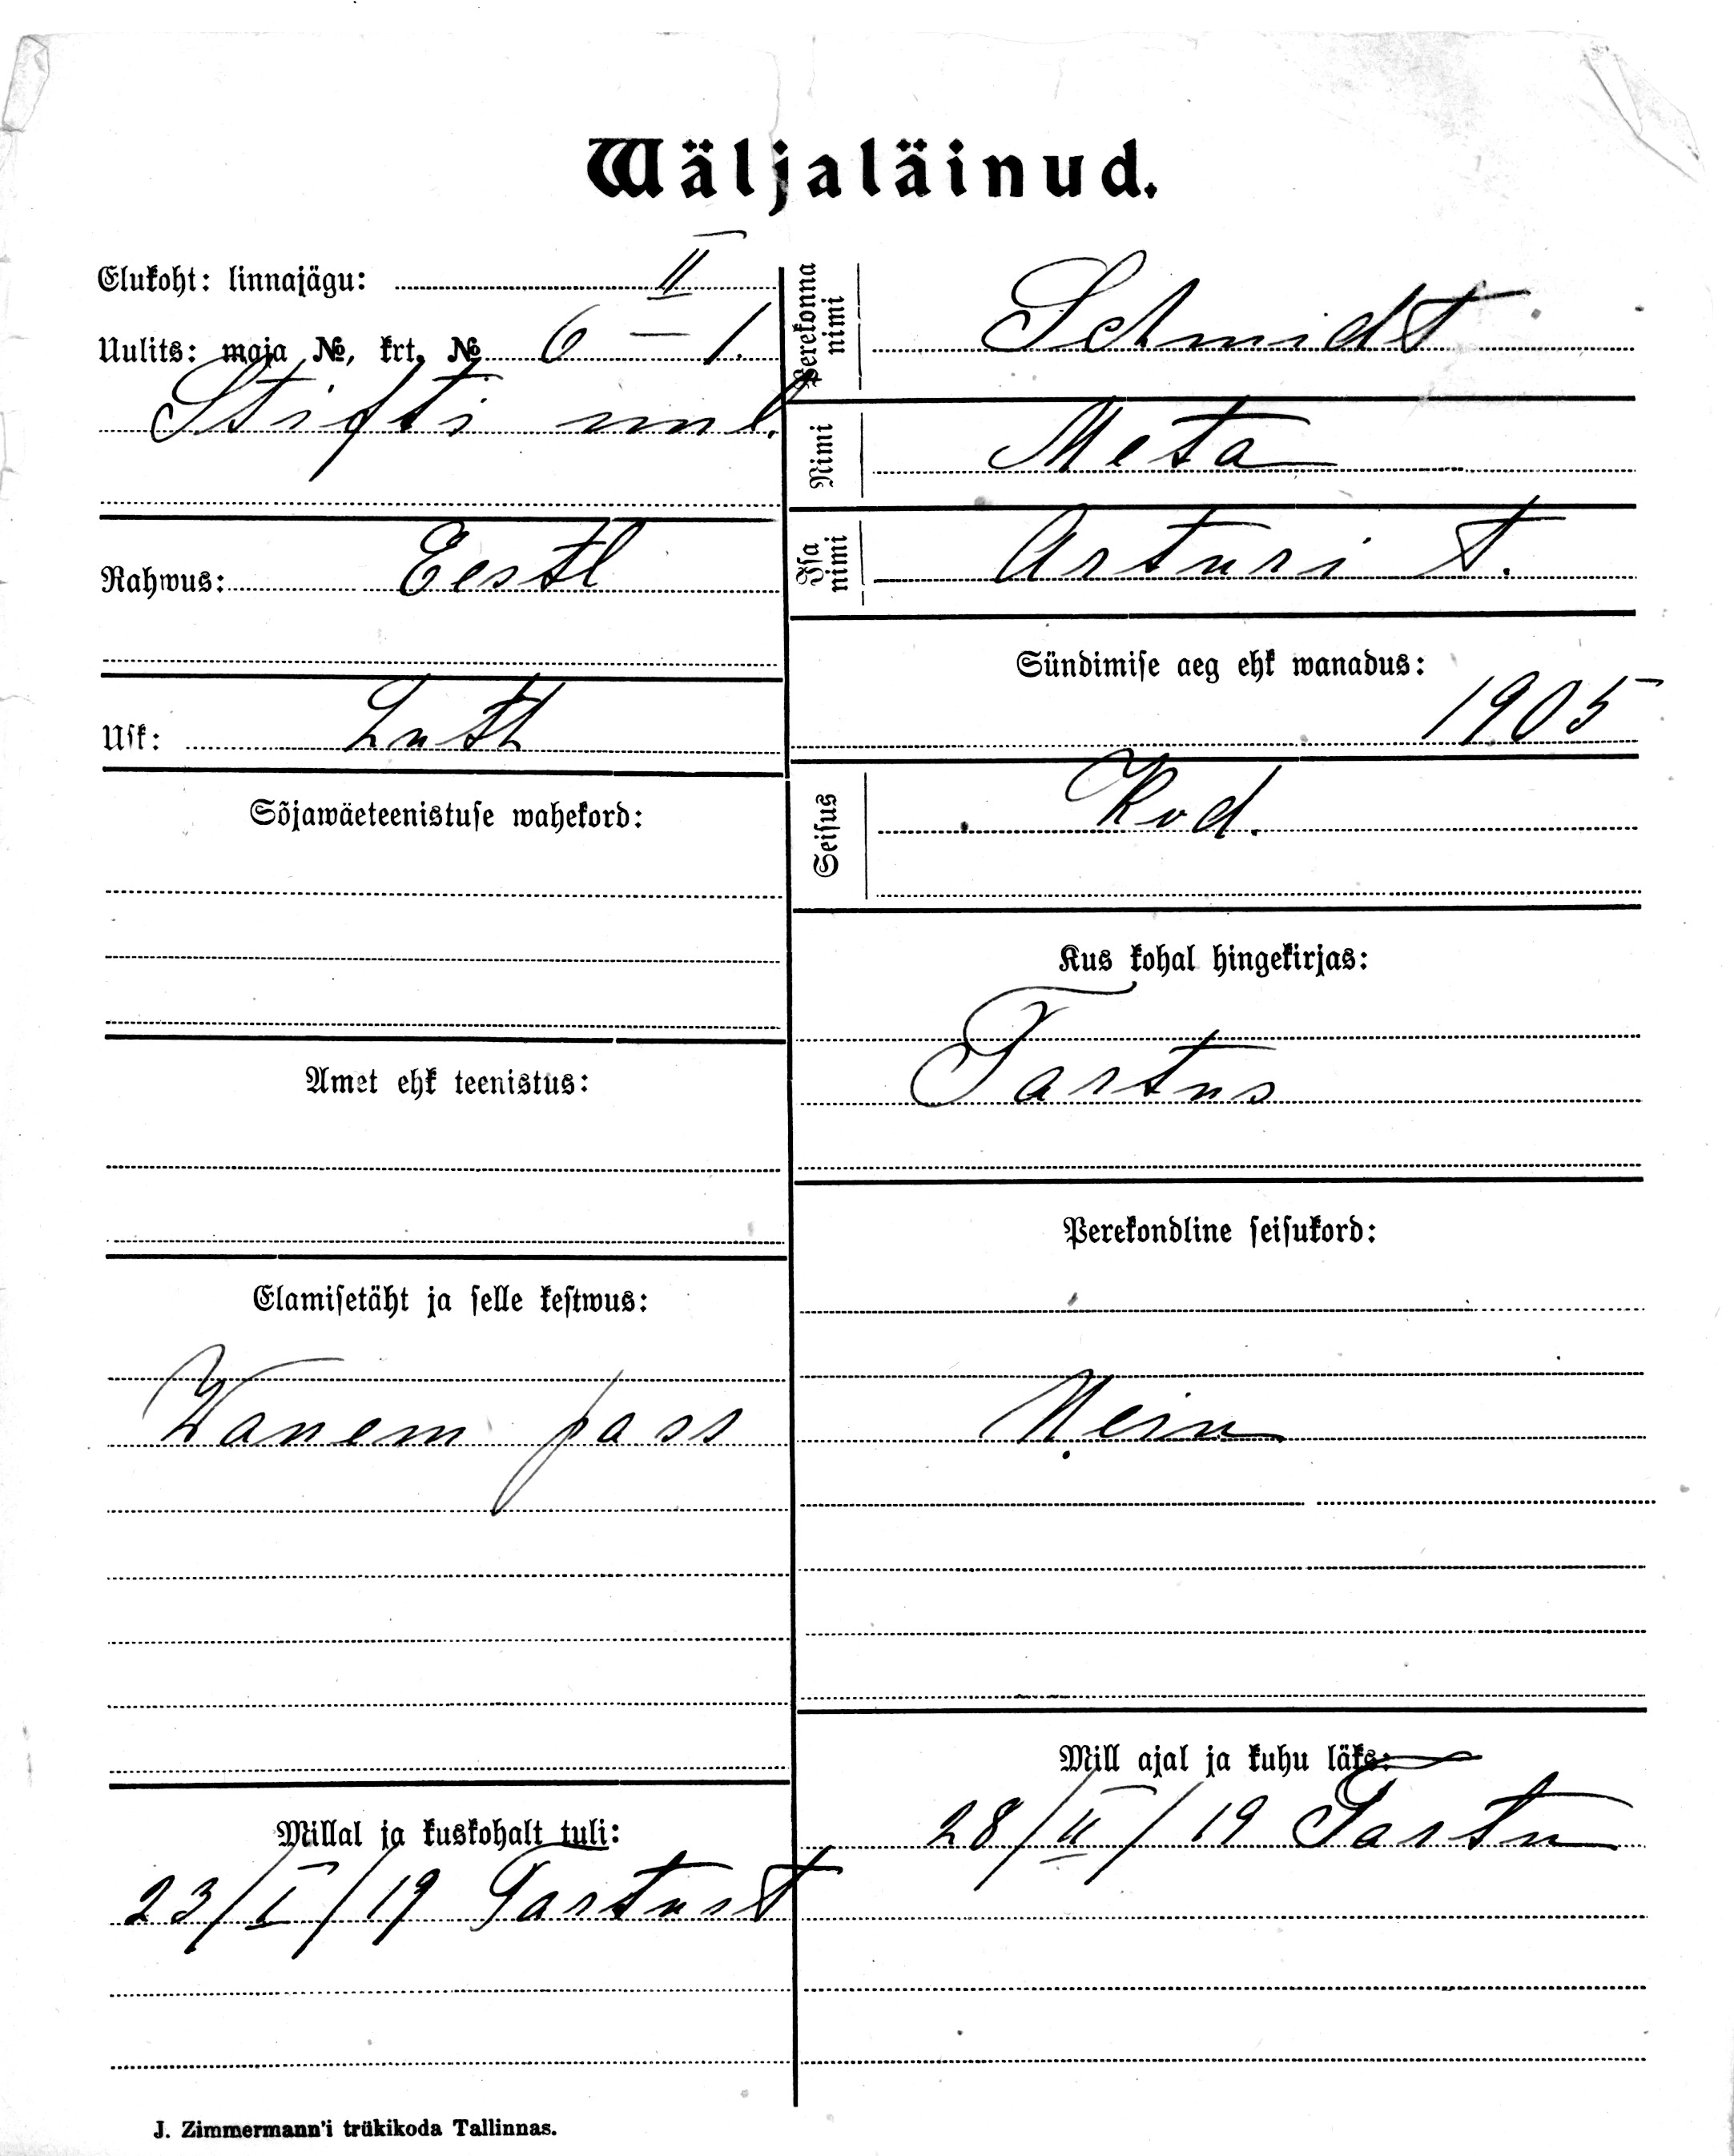 Wäljaläinud.
Elukoht: linnajägu: II
Uulits: maja №, krt. № 6 — 1.
Stifti uul.
Rahwus: Eestl
Usk: Luth
Sõjawäeteenistuse wahekord:
Amet ehk teenistus:
Elamisetäht ja selle kestwus:
Wanem pass
Millal ja kuskohalt tuli:
23/I/19 Tartust
Perekonna nimi Schmidt
Nimi Meta
Isa nimi Arturi t.
Sündimise aeg ehk wanadus:
1905
Seisus Kod.
Kus kohal hingekirjas:
Tartus
Perekondline seisukord:
Mill ajal ja kuhu läks:
28/II/19 Tartu
J. Zimmermann'i trükikoda Tallinnas.